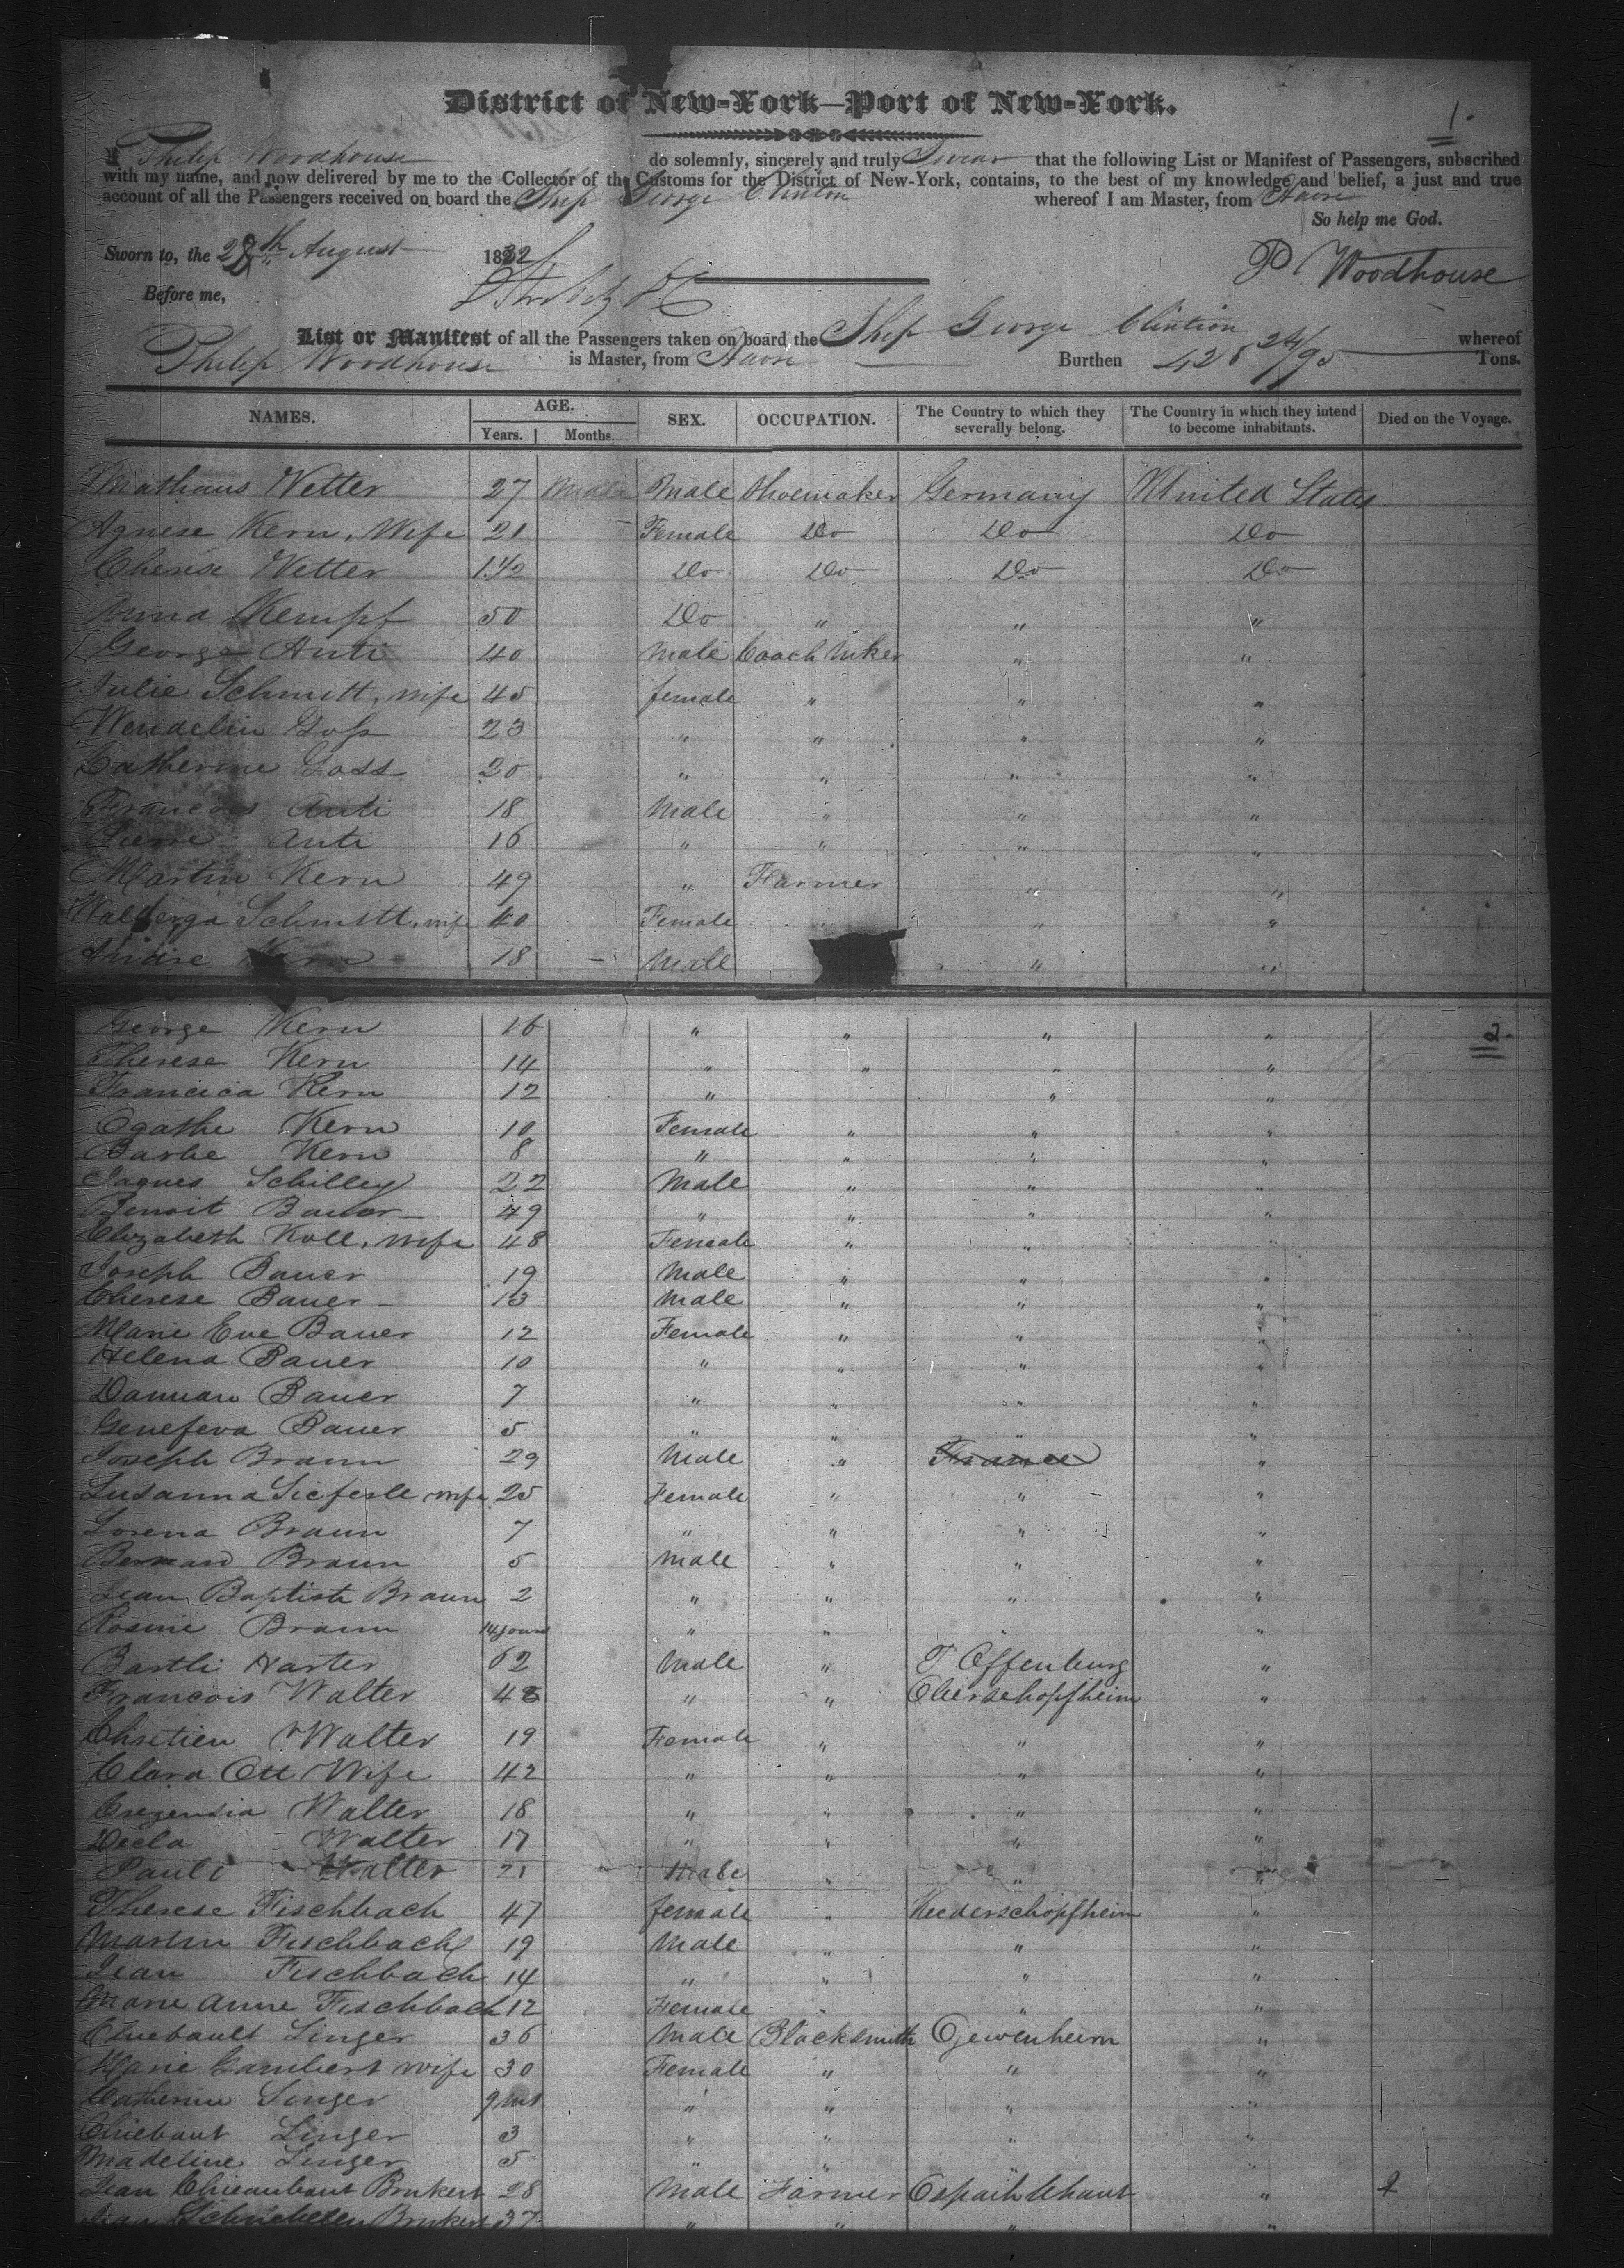 District of New-York—Port of New-York.
1.
I Philip Woodhouse do solemnly, sincerely and truly Swear that the following List or Manifest of Passengers, subscribed
with my name, and now delivered by me to the Collector of the Customs for the District of New-York, contains, to the best of my knowledge and belief, a just and true
account of all the Passengers received on board the Ship George Clinton whereof I am Master, from Havre
So help me God.
Sworn to, the 28th August 1832
P Woodhouse
Before me,
List or Manifest of all the Passengers taken on board the Ship George Clintion whereof
Philip Woodhouse is Master, from Havre Burthen 428 24/95 Tons.
NAMES. AGE. SEX. OCCUPATION. The Country to which they severally belong. The Country in which they intend to become inhabitants. Died on the Voyage.
Years. Months.
Mathaus Vetter 27 Male Male Shoemaker Germany United States
Agnese Kern, Wife 21 Female Do Do Do
Therese Vetter 1 1/2 Do Do Do Do
Anna Kempf 50 Do " " "
George Anti 40 Male Coach Mker " "
Julie Schmitt, wife 45 female " " "
Wendelin Goss 23 " " " "
Catherine Goss 20 " " " "
Francois Anti 18 Male " " "
Pierre Anti 16 " " " "
Martin Kern 49 " Farmer " "
Walberga Schmitt, wife 40 Female " " "
Andre Kern 18 Male " "
2.
George Kern 16 " " " "
Therese Kern 14 " " " "
Francica Kern 12 " " "
Agathe Kern 10 Female " " "
Barbe Kern 8 " " " "
Jaques Schilley 22 Male " " "
Benoit Bauer 49 " " " "
Elizabeth Koll, wife 48 Female " " "
Joseph Bauer 19 Male " " "
Therese Bauer 13 Male " " "
Marie Eve Bauer 12 Female " " "
Helena Bauer 10 " " " "
Damian Bauer 7 " " " "
Genefeva Bauer 5 " " " "
Joseph Braun 29 Male " France "
Susanna Sieferle wife 25 Female " " "
Lorena Braun 7 " " " "
Bernard Braun 5 male " " "
Jean Baptiste Braun 2 " " " "
Rosine Braun 14 jours " " "
Bartli Harter 62 Male " Offenburg "
Francois Walter 48 " " Oberschopfheim "
Chretien Walter 19 Female " " "
Clara Ott Wife 42 " " " "
Cregensia Walter 18 " " " "
Decla Walter 17 " " " "
Pauli Walter 21 Male " " "
Therese Fischbach 47 female " Niederschopfheim "
Martin Fischbach 19 Male " " "
Jean Fischbach 14 " " " "
Marie Anne Fischbach 12 Female " " "
Thiebault Singer 36 Male Blacksmith Gewenheim "
Marie Gambert wife 30 Female " " "
Catherine Singer 9 mt " " " "
Thiebaut Singer 3 " " " "
Madeline Singer 5 " " " "
Jean Brukert 28 Male Farmer "
Jean Brukert 37 " " " "